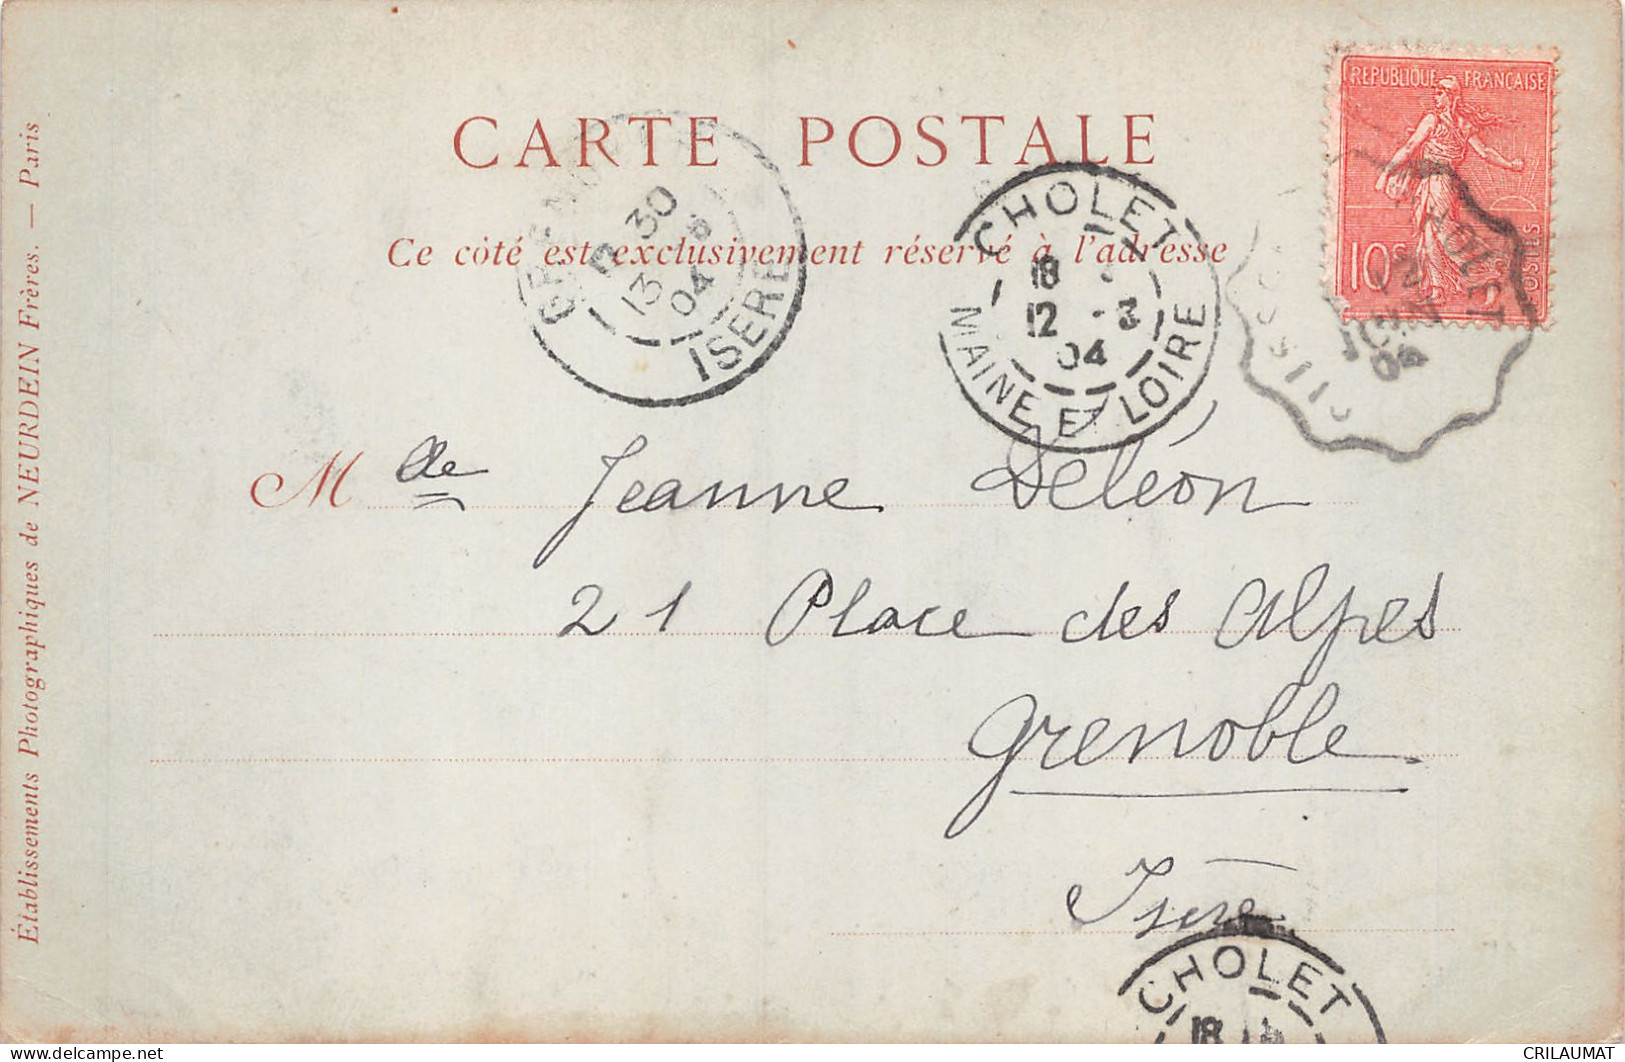 RÉPUBLIQUE FRANÇAISE
10c POSTES
CARTE POSTALE
Ce côté est exclusivement réservé à l'adresse
GRENOBLE
12 30
13 3
04
ISERE
CHOLET
18
12 -3
04
MAINE ET LOIRE
CHOLET
04
Mdelle Jeanne Déléon
21 Place des Alpes
Grenoble
Isère
CHOLET
18
Établissements Photographiques de NEURDEIN Frères. — Paris
CRILAUMAT